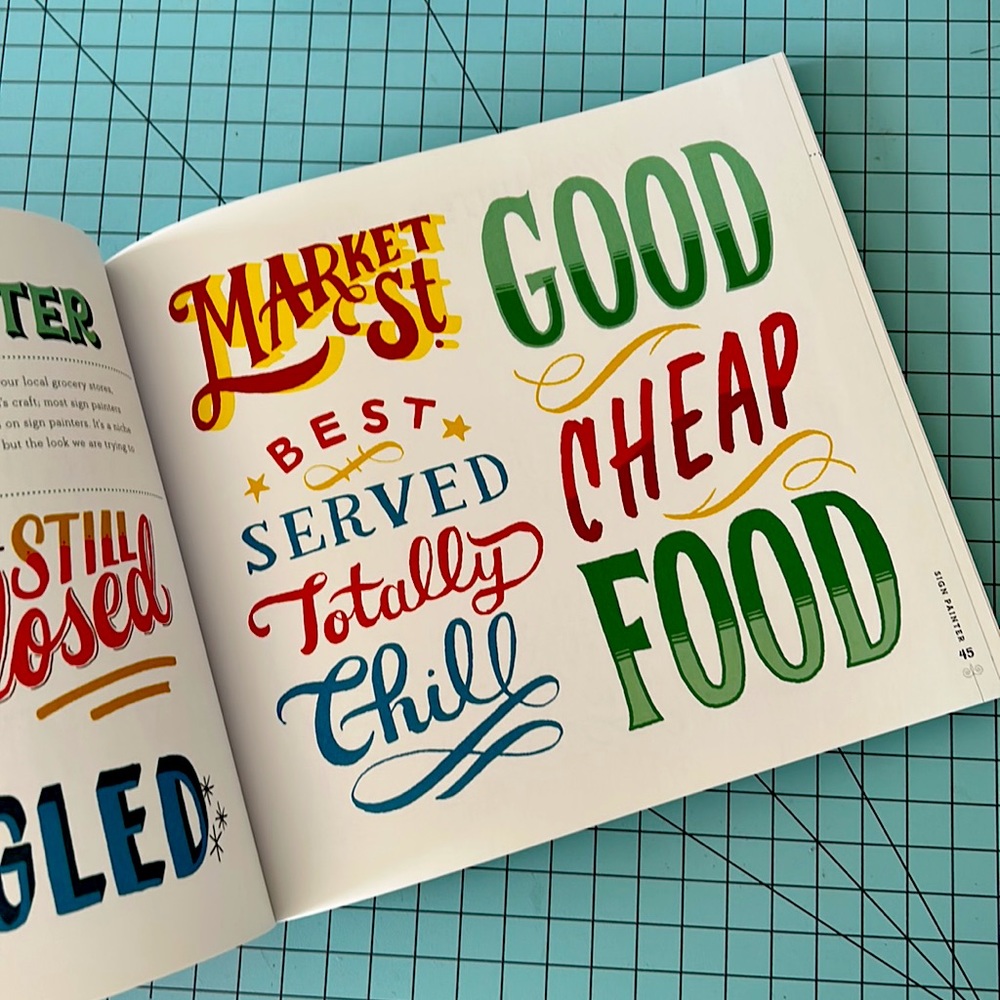 TER
your local grocery stores,
's craft; most sign painters
on sign painters. It's a niche
but the look we are trying to
STILL
losed
GLED
MARKET
St.
BEST
SERVED
Totally
Chill
GOOD
CHEAP
FOOD
SIGN PAINTER
45